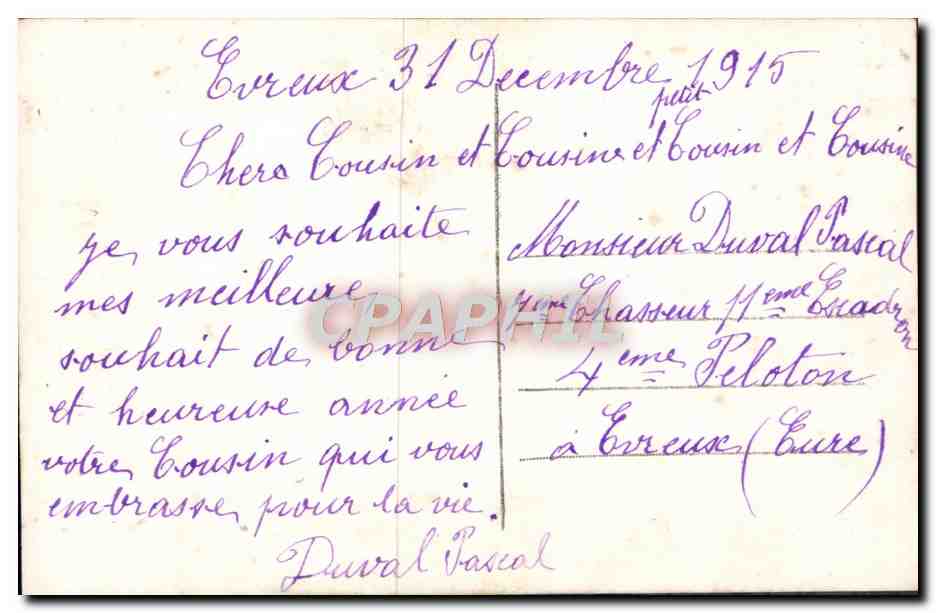 Evreux 31 Decembre 1915
petit
Chers Cousin et Cousine et Cousin et Cousine
je vous souhaite
mes meilleure
souhait de bonne
et heureuse année
votre Cousin qui vous
embrasse pour la vie.
Duval Pascal
Monsieur Duval Pascal
7eme Chasseur 11eme Escadron
4eme Peloton
à Evreux (Eure)
CPAPHIL